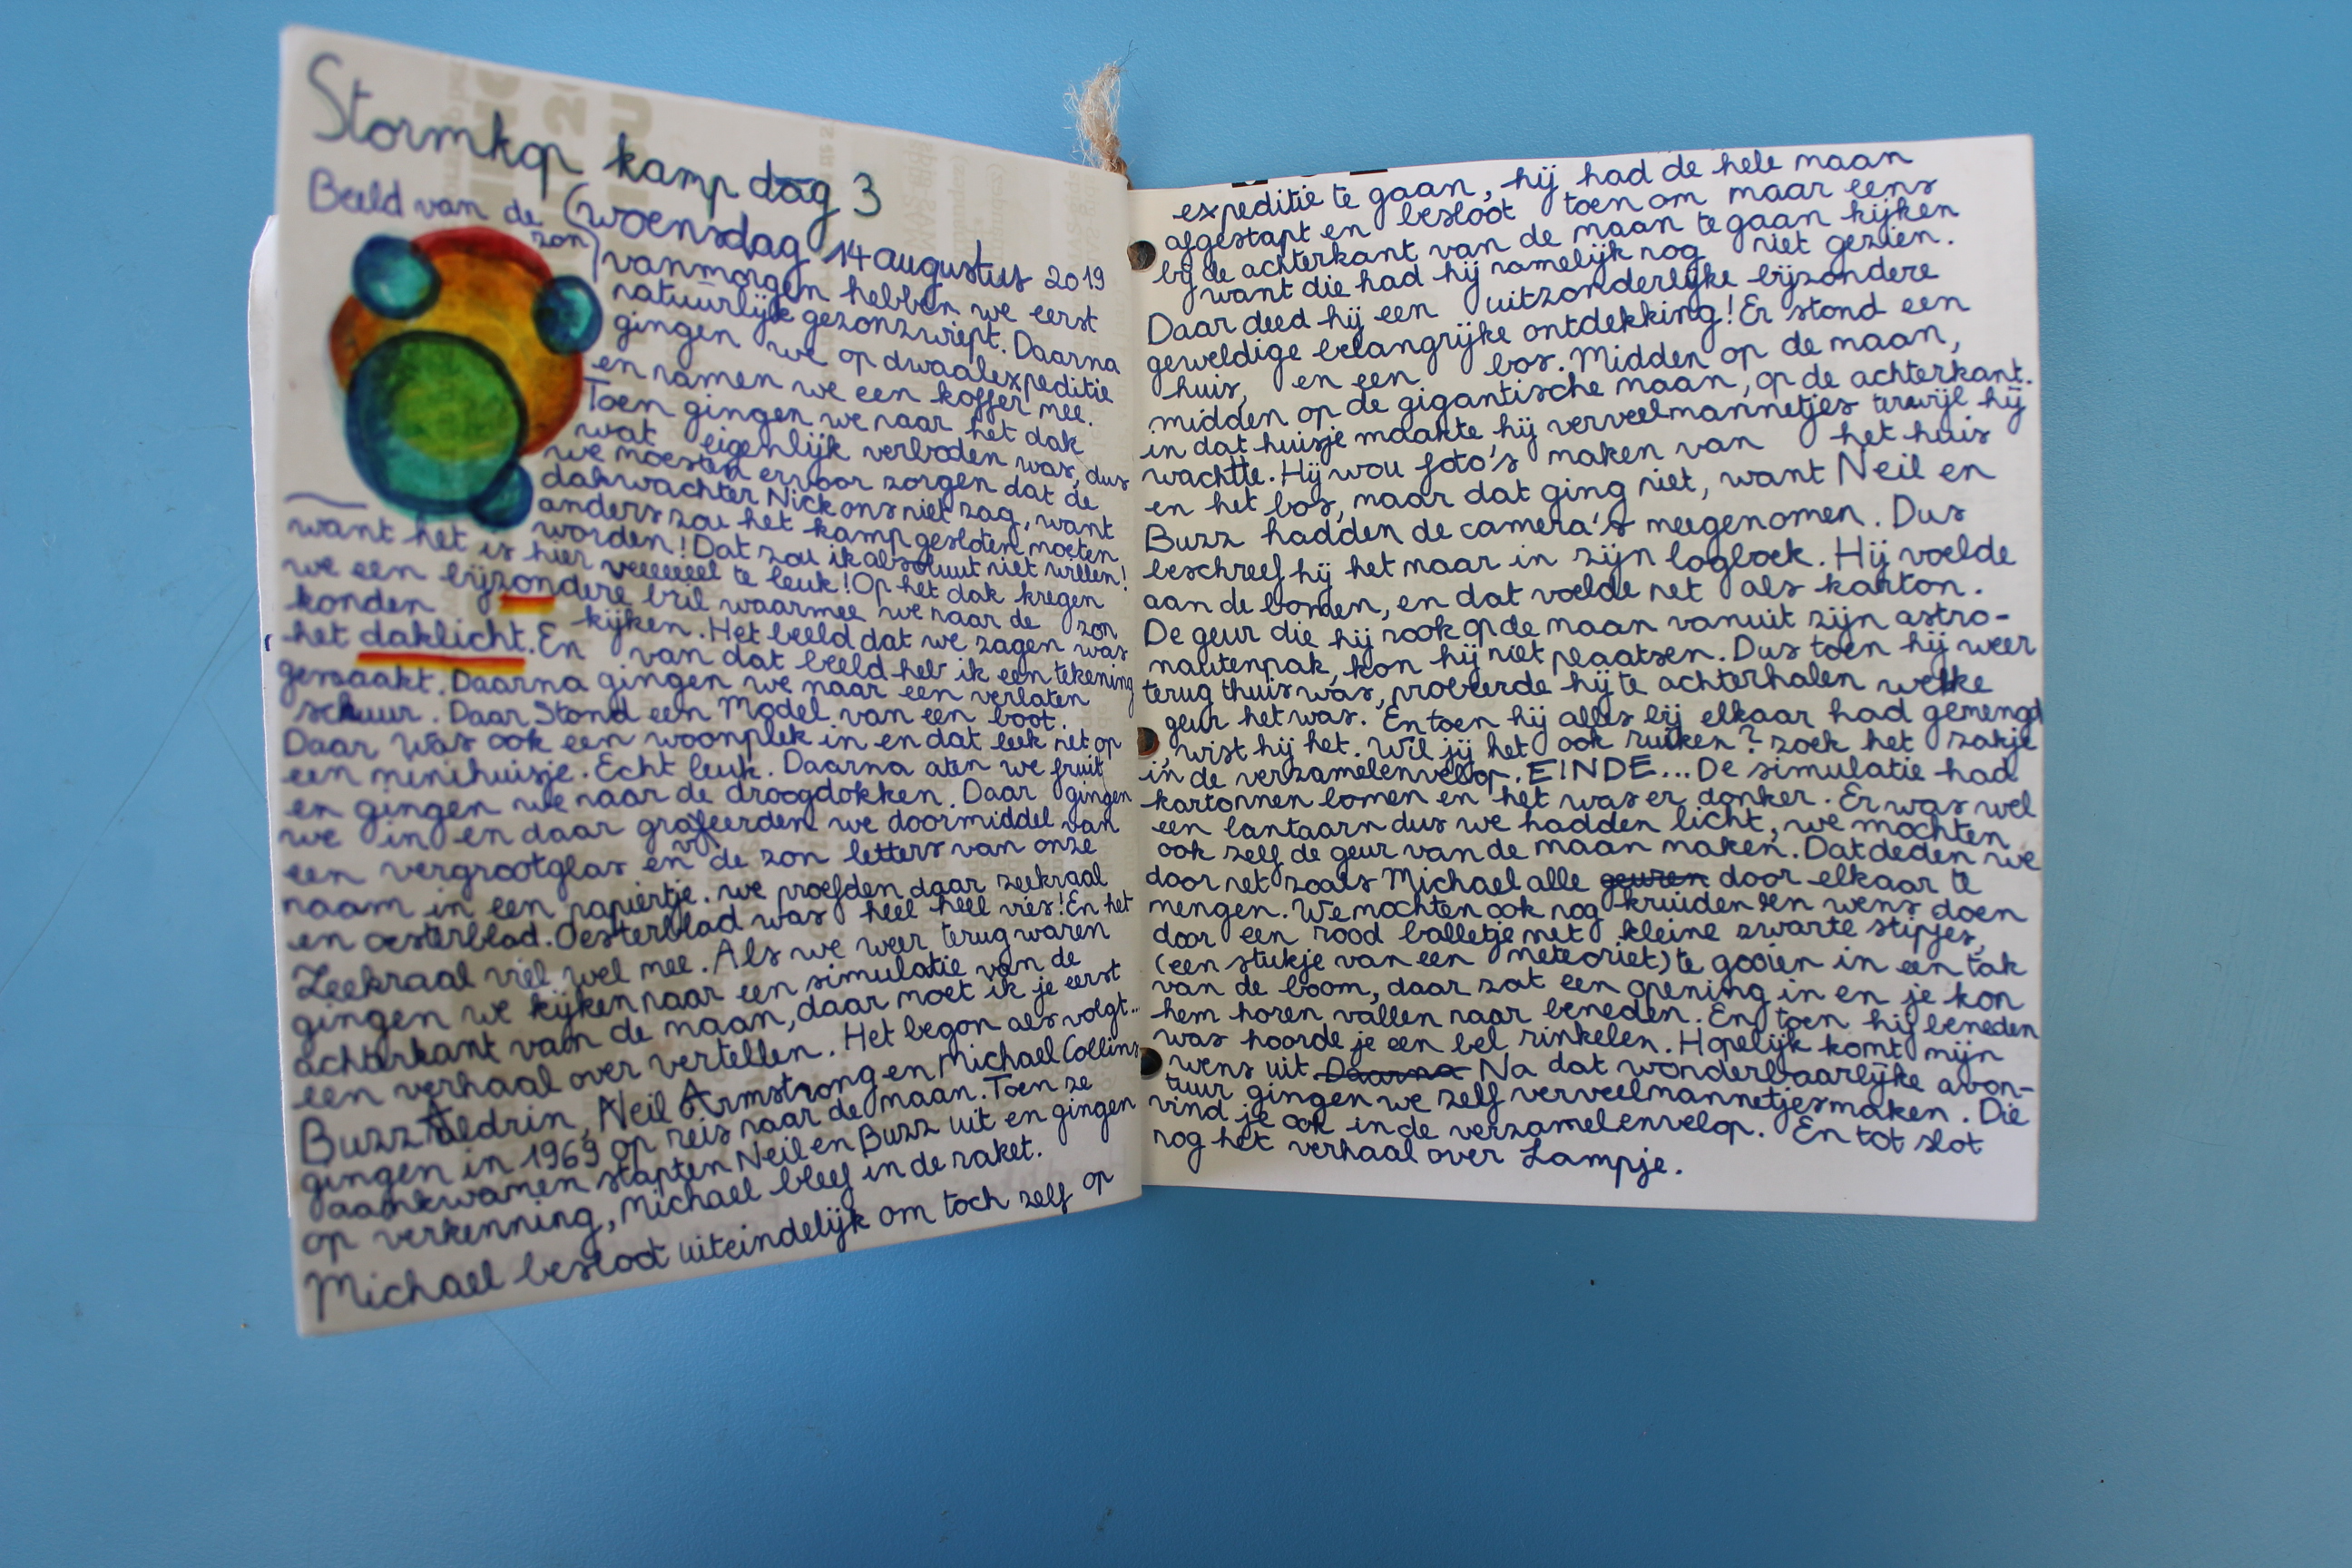 Stormkop kamp dag 3
Beeld van de
zon
(woensdag 14 augustus 2019
vanmorgen hebben we eerst
natuurlijk gezonzwiept. Daarna
gingen we op dwaalexpeditie
en namen we een koffer mee.
Toen gingen we naar het dak
wat eigenlijk verboden was, dus
we moesten ervoor zorgen dat de
dakwachter Nick ons niet zag, want
anders zou het kamp gesloten moeten
worden! Dat zou ik absoluut niet willen!
want het is hier veeeeeel te leuk! Op het dak kregen
we een bijzondere bril waarmee we naar de zon
konden kijken. Het beeld dat we zagen was
het daklicht. En van dat beeld heb ik een tekening
gemaakt. Daarna gingen we naar een verlaten
schuur. Daar Stond een Model van een boot.
Daar was ook een woonplek in en dat leek net op
een minihuisje. Echt leuk. Daarna aten we fruit
en gingen we naar de droogdokken. Daar gingen
we in en daar graveerden we doormiddel van
een vergrootglas en de zon letters van onze
naam in een papiertje. we proefden daar zeekraal
en oesterblad. Oesterblad was heel heel vies! En het
Zeekraal viel wel mee. Als we weer terug waren
gingen we kijken naar een simulatie van de
achterkant van de maan, daar moet ik je eerst
een verhaal over vertellen. Het begon als volgt...
Buzz Aldrin, Neil Armstrong en Michael Collins
gingen in 1969 op reis naar de maan. Toen ze
aankwamen stapten Neil en Buzz uit en gingen
op verkenning, Michael bleef in de raket.
Michael besloot uiteindelijk om toch zelf op
expeditie te gaan, hij had de hele maan
afgestapt en besloot toen om maar eens
bij de achterkant van de maan te gaan kijken
want die had hij namelijk nog niet gezien.
Daar deed hij een uitzonderlijke bijzondere
geweldige belangrijke ontdekking! Er stond een
huis, en een bos. Midden op de maan,
midden op de gigantische maan, op de achterkant.
in dat huisje maakte hij verveelmannetjes terwijl hij
wachtte. Hij wou foto's maken van het huis
en het bos, maar dat ging niet, want Neil en
Buzz hadden de camera's meegenomen. Dus
beschreef hij het maar in zijn logboek. Hij voelde
aan de bomen, en dat voelde net als karton.
De geur die hij rook op de maan vanuit zijn astro-
nautenpak, kon hij niet plaatsen. Dus toen hij weer
terug thuis was, probeerde hij te achterhalen welke
geur het was. En toen hij alles bij elkaar had gemengd
, wist hij het. Wil jij het ook ruiken? zoek het zakje
in de verzamelenvelop. EINDE... De simulatie had
kartonnen bomen en het was er donker. Er was wel
een lantaarn dus we hadden licht, we mochten
ook zelf de geur van de maan maken. Dat deden we
door net zoals Michael alle geuren door elkaar te
mengen. We mochten ook nog kruiden een wens doen
door een rood balletje met kleine zwarte stipjes,
(een stukje van een meteoriet) te gooien in een tak
van de boom, daar zat een opening in en je kon
hem horen vallen naar beneden. En toen hij beneden
was hoorde je een bel rinkelen. Hopelijk komt mijn
wens uit. Daarna Na dat wonderbaarlijke avon-
tuur gingen we zelf verveelmannetjes maken. Die
vind je ook in de verzamelenvelop. En tot slot
nog het verhaal over Lampje.